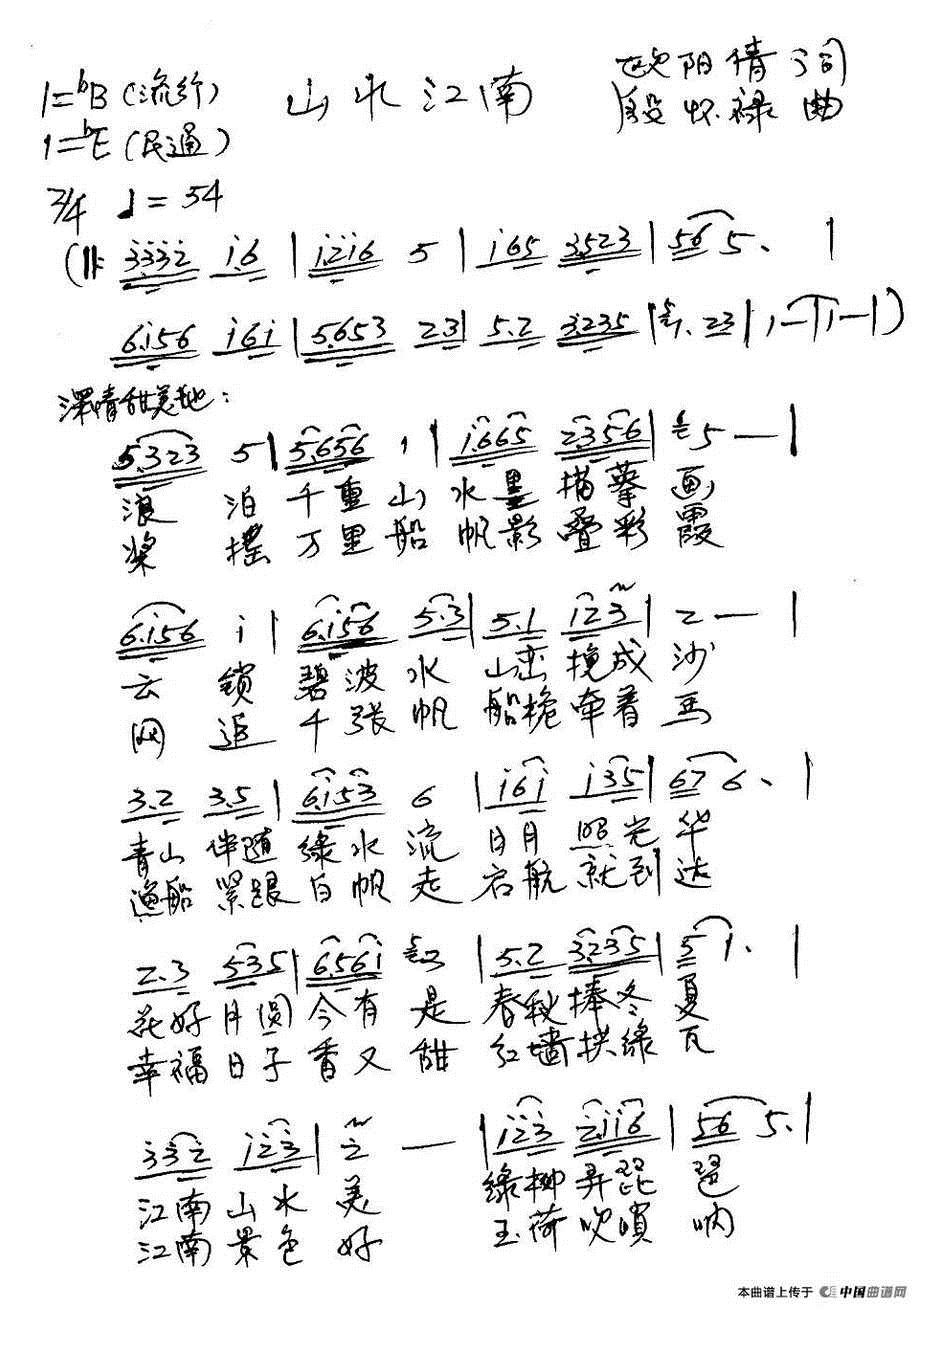 1=ᵇB（流行） 山水江南 欧阳倩 词
1=ᵇE（民通） 段怀禄 曲
2/4 ♩=54
(‖: 3332 i.6 | i.2i6 5 | i65 3.523 | 56 5. |
6.i56 i6i | 5.653 2.3 | 5.2 3.235 | 1. 23 | 1 — | 1 — |)
深情甜美地：
5.323 5 | 5.656 1 | i.665 2356 | 5 — |
浪 泊 千重山 水墨 描摹 画
桨 摇 万里船 帆影 叠彩 霞
6.i56 i | 6.i56 5.3 | 5.1 123 | 2 — |
云 锁 碧波水 山峦 揽成 沙
网 追 千张帆 船桅 牵着 马
3.2 3.5 | 6.i53 6 | i6i i35 | 67 6. |
青山 伴随 绿水 流 日月 照光 华
渔船 紧跟 白帆 走 启航 就到 达
2.3 535 | 6.56i 3 | 5.2 3235 | 5 1. |
花好 月圆 今有 是 春秋 捧冬 夏
幸福 日子 香又 甜 红墙 拱绿 瓦
332 i23 | 2 — | i23 2.ii6 | 56 5. |
江南 山水 美 绿柳 弄琵 琶
江南 景色 好 玉荷 吹唢 呐
本曲谱上传于 中国曲谱网